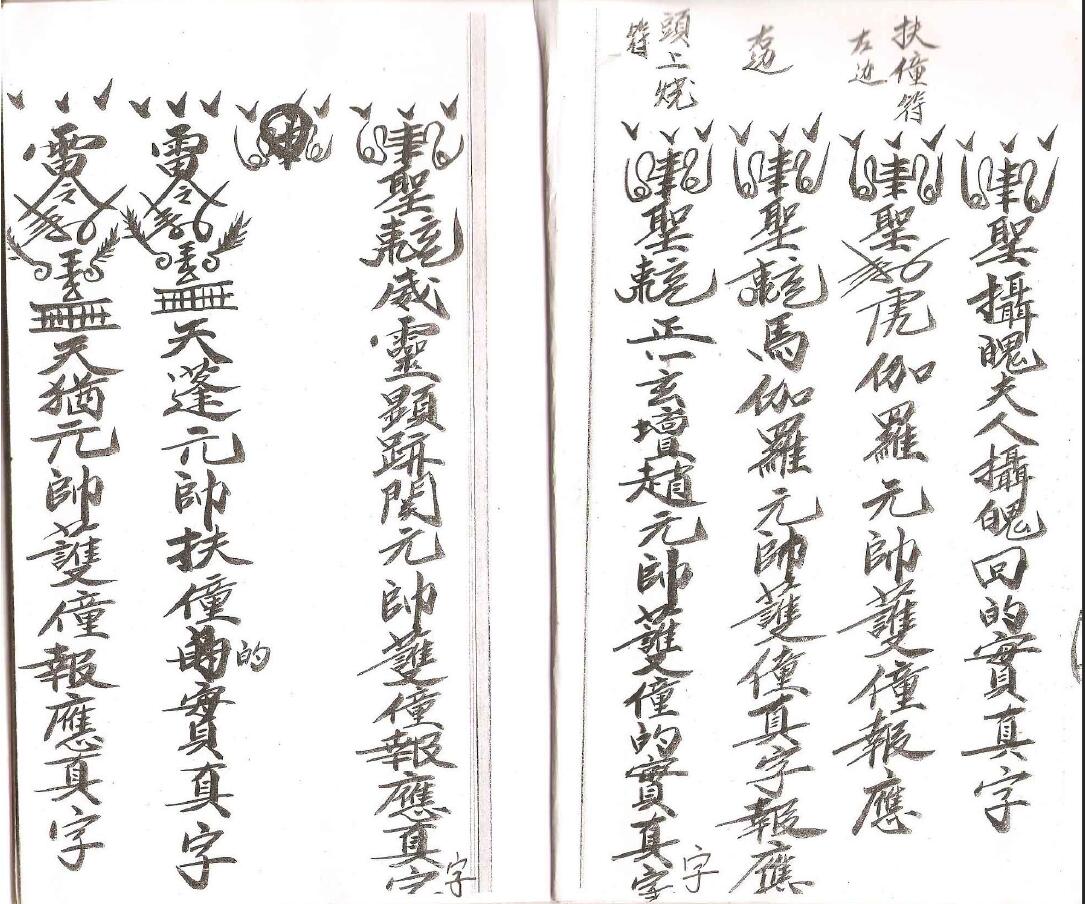 聿聖攝魄夫人攝魄回的實真字
扶僮符
左边
聿聖虎伽羅元帥護僮報應
右边
聿聖馬伽羅元帥護僮真字報應
頭上燒
符
聿聖正一玄壇趙元帥護僮的實真字
字
聿聖威靈顯跡関元帥護僮報應真字
字
申
雷令天蓬元帥扶僮的實真字
的
雷令天猶元帥護僮報應真字